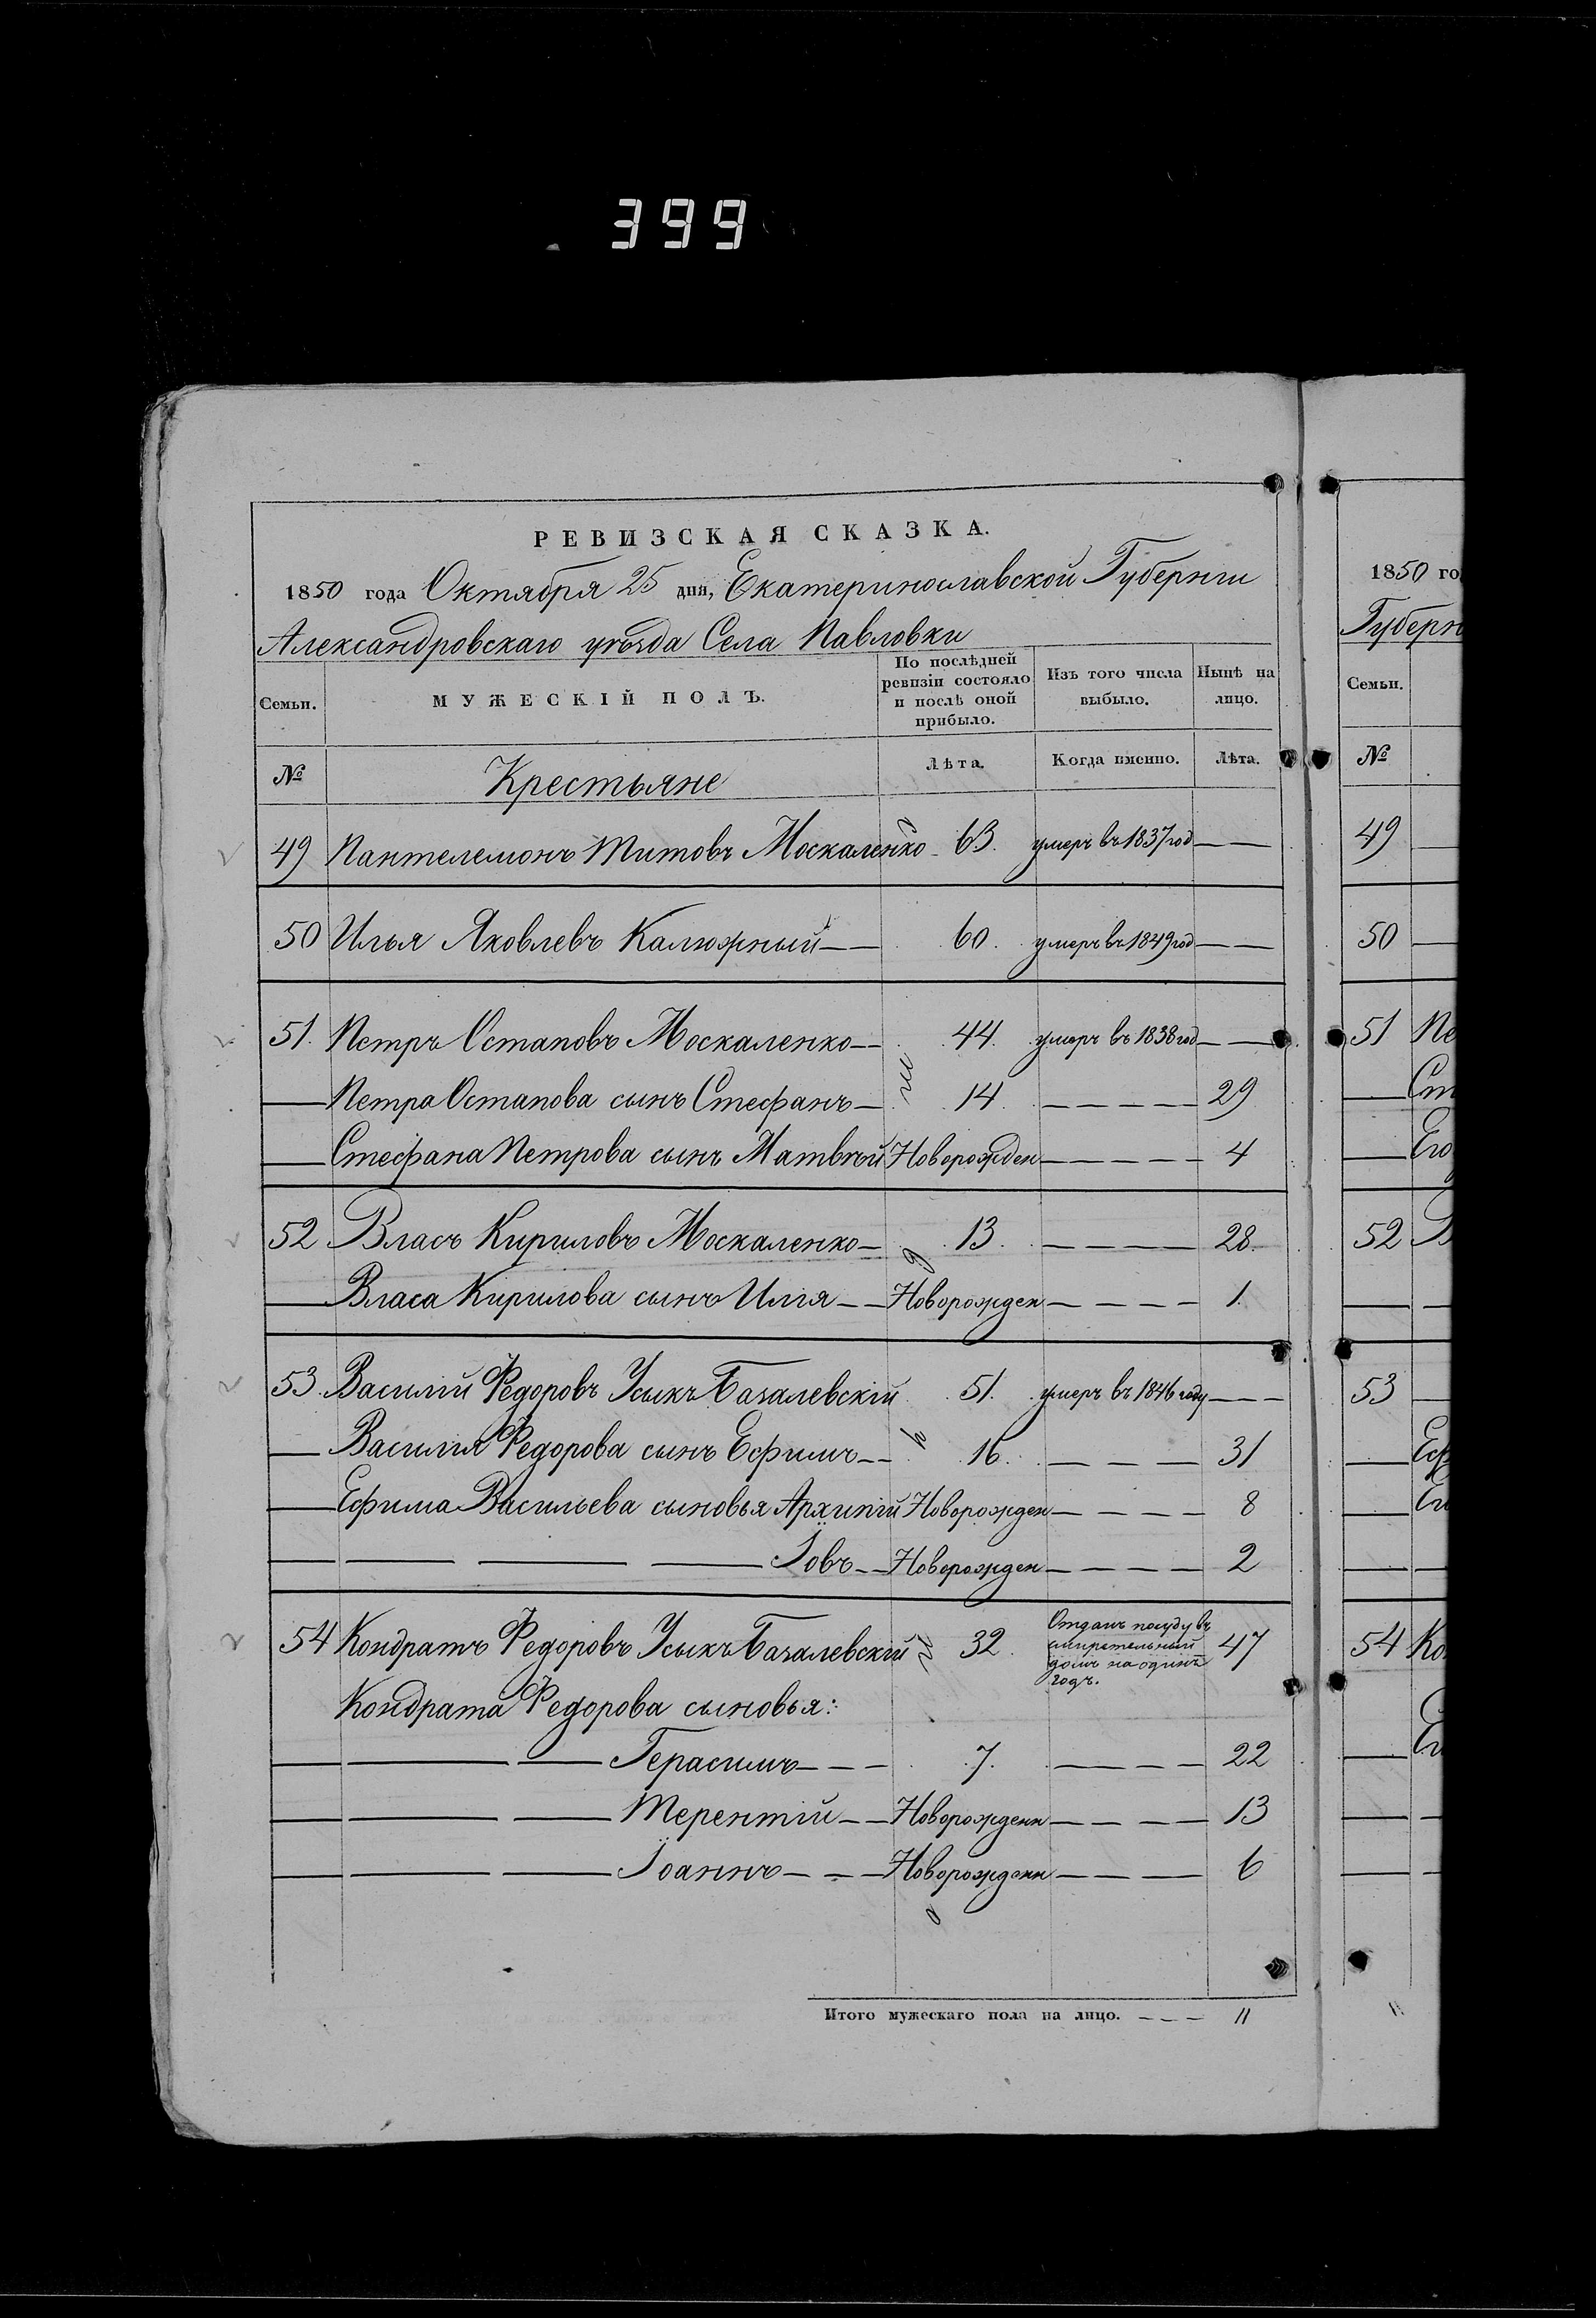 399
РЕВИЗСКАЯ СКАЗКА.
1850 года Октября 25 дня, Екатеринославской Губерніи
Александровскаго уѣзда Села Павловки
Семьи. МУЖЕСКІЙ ПОЛЪ. По послѣдней ревизіи состояло и послѣ оной прибыло. Изъ того числа выбыло. Нынѣ на лицо.
№ Крестьяне Лѣта. Когда именно. Лѣта.
49 Пантелемонъ Титовъ Москаленко 63. умеръ въ 1837 год
50 Илья Яковлевъ Калюжный 60. умеръ въ 1849 год
51. Петръ Остаповъ Москаленко 44. умеръ въ 1838 год
Петра Остапова сынъ Стефанъ 14. 29
Стефана Петрова сынъ Матвѣй Новорожден 4
52 Власъ Кириловъ Москаленко 13. 28.
Власа Кирилова сынъ Илія Новорожден 1.
53. Василій Федоровъ Усыкъ Базалевскій 51. умеръ въ 1846 году
Василія Федорова сынъ Ефимъ 16. 31
Ефима Васильева сыновья Архипій Новорожден 8
Іовъ Новорожден 2
54 Кондратъ Федоровъ Усыкъ Базалевскій 32. Отданъ посуду въ смирительный домъ на одинъ годъ. 47
Кондрата Федорова сыновья:
Герасимъ 7. 22
Терентій Новорожденн 13
Іоаннъ Новорожденн 6
Итого мужескаго пола на лицо. 11
1850 го
Губерн
Семьи.
№
49
50
51 Пе
Ст
Его
52 В
53
Еф
54 Ко
11